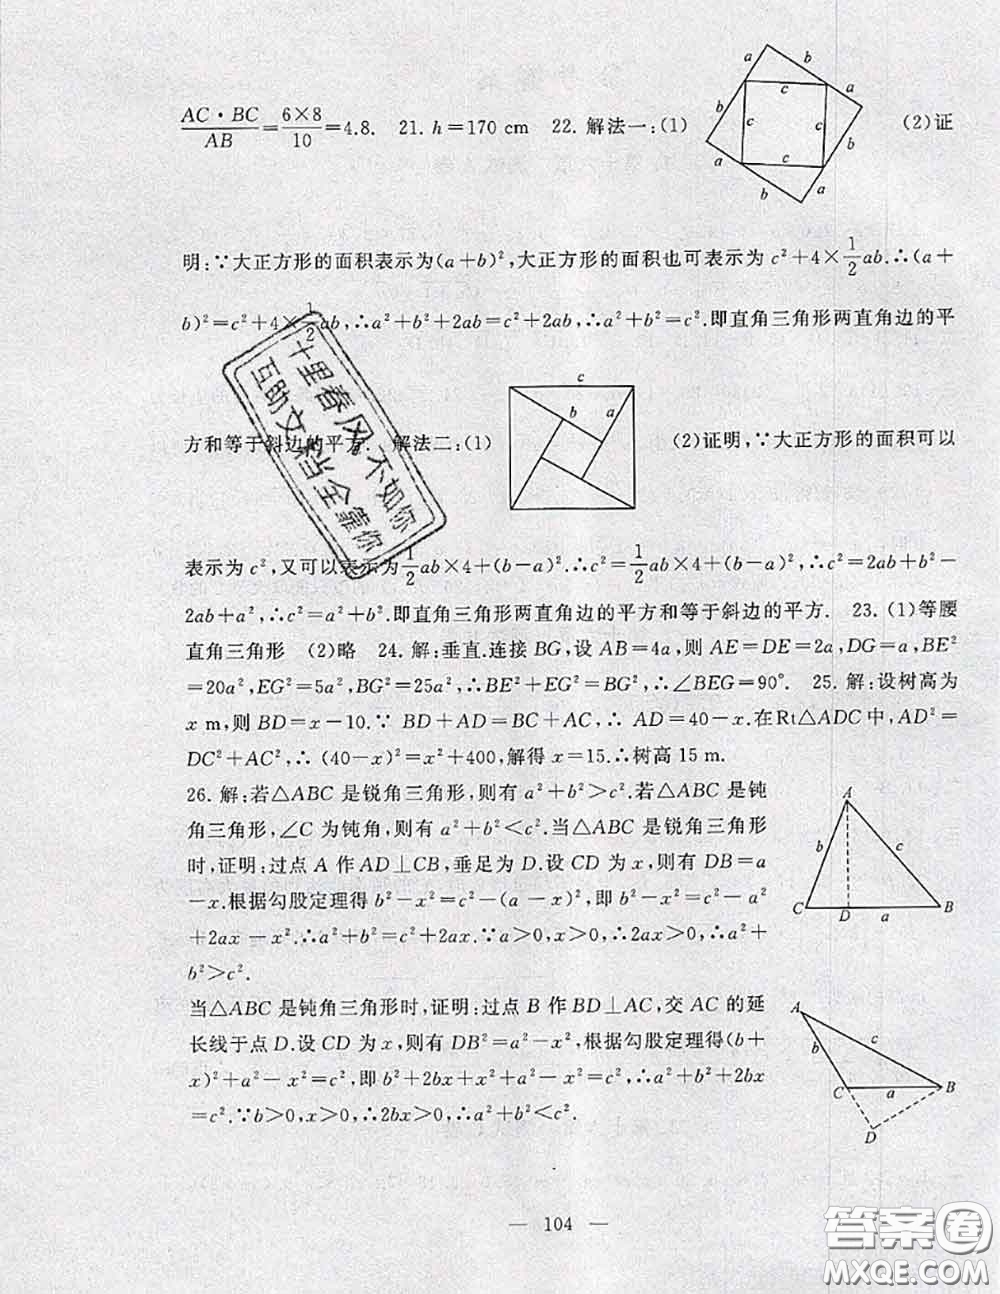 AC·BC/AB=6×8/10=4.8. 21. h=170 cm 22. 解法一:(1) (2)证
a b
b c a
c c
a c b
b a
明:∵大正方形的面积表示为(a+b)²,大正方形的面积也可表示为 c²+4×1/2ab.∴(a+
b)²=c²+4×1/2ab,∴a²+b²+2ab=c²+2ab,∴a²+b²=c².即直角三角形两直角边的平
c
b a
方和等于斜边的平方. 解法二:(1) (2)证明,∵大正方形的面积可以
十里春风不如你
互助文档全靠你
表示为 c²,又可以表示为1/2ab×4+(b-a)².∴c²=1/2ab×4+(b-a)²,∴c²=2ab+b²-
2ab+a²,∴c²=a²+b².即直角三角形两直角边的平方和等于斜边的平方. 23. (1)等腰
直角三角形 (2)略 24. 解:垂直.连接 BG,设 AB=4a,则 AE=DE=2a,DG=a,BE²
=20a²,EG²=5a²,BG²=25a²,∴BE²+EG²=BG²,∴∠BEG=90°. 25. 解:设树高为
x m,则 BD=x-10.∵ BD+AD=BC+AC,∴ AD=40-x.在Rt△ADC 中,AD²=
DC²+AC²,∴ (40-x)²=x²+400,解得 x=15.∴树高 15 m.
26. 解:若△ABC 是锐角三角形,则有 a²+b²>c².若△ABC 是钝
角三角形,∠C 为钝角,则有 a²+b²<c².当△ABC 是锐角三角形
时,证明:过点 A 作 AD⊥CB,垂足为 D.设 CD 为 x,则有 DB=a
-x.根据勾股定理得 b²-x²=c²-(a-x)²,即 b²-x²=c²-a²
+2ax-x².∴a²+b²=c²+2ax.∵a>0,x>0,∴2ax>0,∴a²+
b²>c².
A
b c
C D a B
当△ABC 是钝角三角形时,证明:过点 B 作 BD⊥AC,交 AC 的延
长线于点 D.设 CD 为 x,则有 DB²=a²-x²,根据勾股定理得(b+
x)²+a²-x²=c²,即 b²+2bx+x²+a²-x²=c²,∴a²+b²+2bx
=c².∵b>0,x>0,∴2bx>0,∴a²+b²<c².
A
b c
C a B
D
— 104 —
答案圈
MXQE.COM